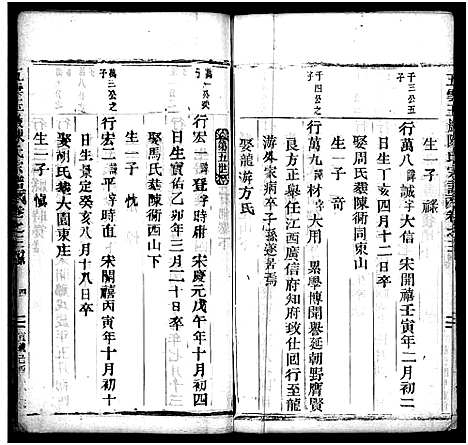 五雲王嚴陳氏宗譜卷之二
千三公五子
行萬八諱誠字大信 宋開禧壬寅年二月初二
日生丁亥四月十二日卒
娶周氏葬陳衕同東山
生一子 竒
千四公子
行萬九諱材字大用 累舉博聞譽延朝野膺賢
良方正舉任江西廣信府知府致仕回行至龍
游外家病卒子孫遂居焉
娶龍游方氏
第五世
萬一公子
行宏一諱登字時用 宋慶元戊午年十月初四
日生寶佑乙卯年三月二十日卒
娶馬氏葬陳衕西山下
生一子 忱
萬三公之子
行宏二諱平字時直 宋開禧丙寅年十月初十
日生景定癸亥八月十八日卒
娶胡氏葬大園東庄
生二子 愼